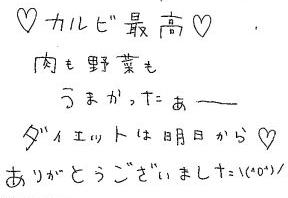 ♡カルビ最高♡
肉も野菜も
うまかったぁー
ダイエットは明日から♡
ありがとうございました\(^o^)/